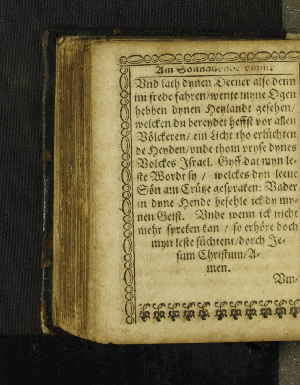 Am Sonnavende vmme
Vnd lath dynen Deener alse denn
im frede fahren/wente myne Ogen
hebben dynen Heylandt gesehen/
welcken du bereydet heffst vor allen
Völckeren/ ein Licht tho erlüchten
de Heyden/vnde thom pryse dynes
Volckes Israel. Gyff dat myn le-
ste Wordt sy / welckes dyn leeue
Sön am Crütze gespraken: Vader
in dyne Hende befehle ick dy my-
nen Geist. Vnde wenn ick nicht
mehr spreken kan / so erhöre doch
myn leste süchtent/dorch Je-
sum Christum/A-
men.
Vm-